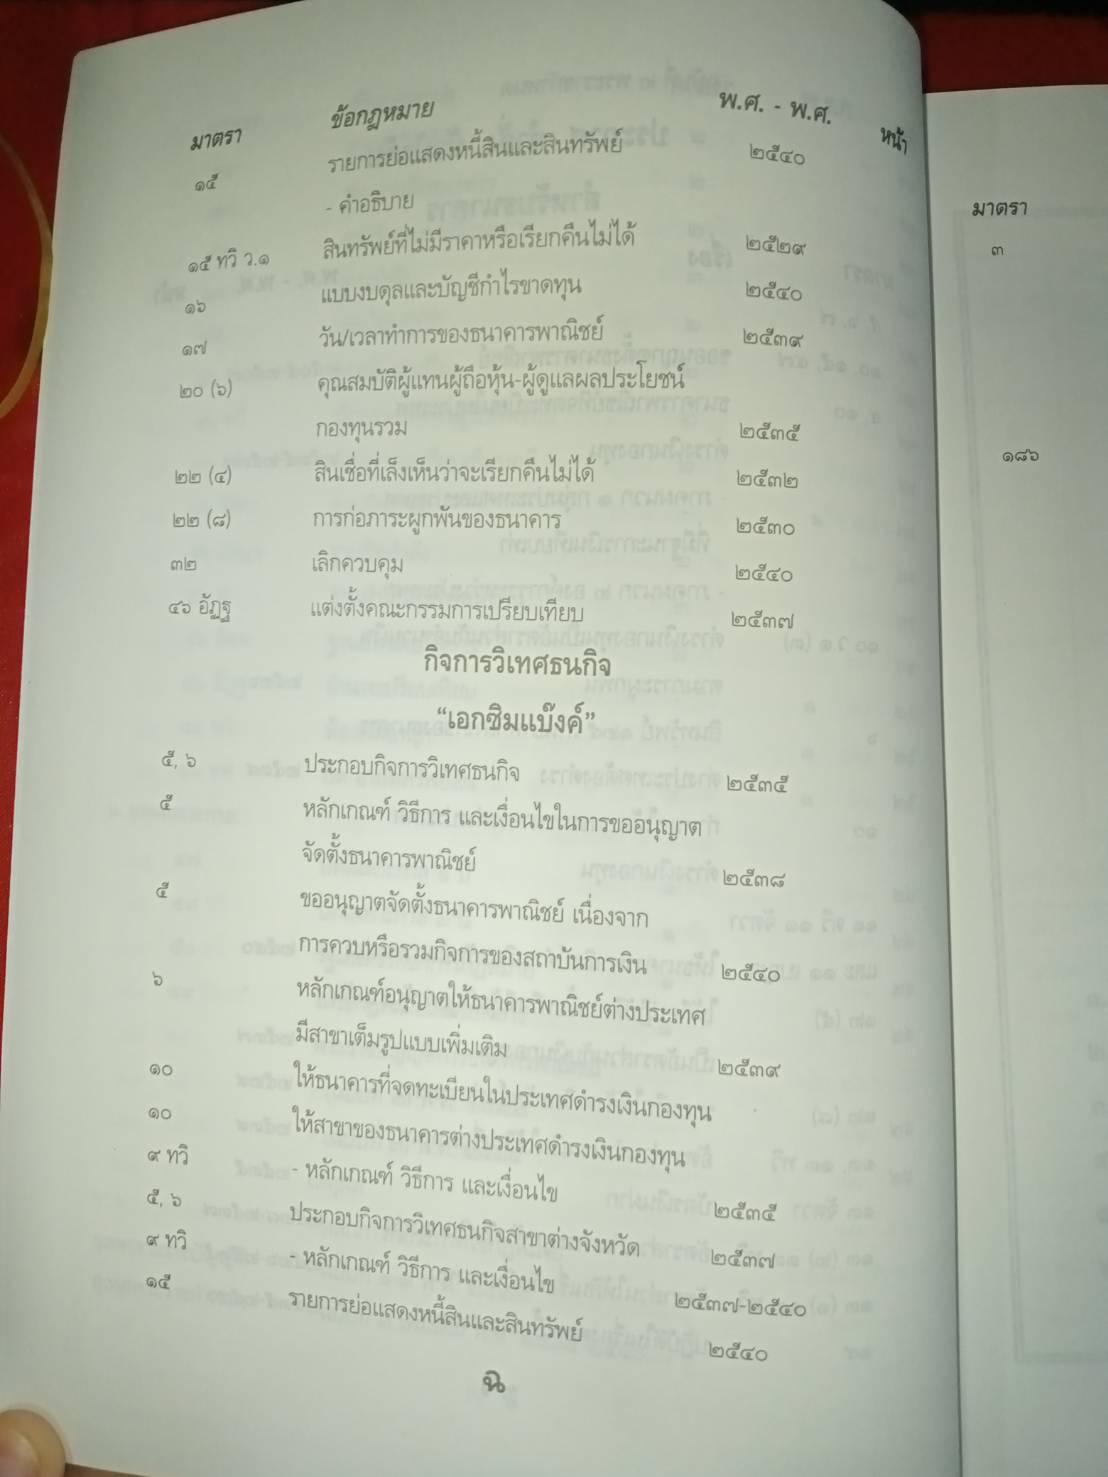 มาตรา ข้อกฎหมาย พ.ศ. - พ.ศ. หน้า
๑๕ รายการย่อแสดงหนี้สินและสินทรัพย์ ๒๕๔๐
- คำอธิบาย
๑๕ ทวิ ว.๑ สินทรัพย์ที่ไม่มีราคาหรือเรียกคืนไม่ได้ ๒๕๒๙
๑๖ แบบงบดุลและบัญชีกำไรขาดทุน ๒๕๔๐
๑๗ วัน/เวลาทำการของธนาคารพาณิชย์ ๒๕๓๙
๒๐ (๖) คุณสมบัติผู้แทนผู้ถือหุ้น-ผู้ดูแลผลประโยชน์
กองทุนรวม ๒๕๓๕
๒๒ (๔) สินเชื่อที่เล็งเห็นว่าจะเรียกคืนไม่ได้ ๒๕๓๒
๒๒ (๘) การก่อภาระผูกพันของธนาคาร ๒๕๓๐
๓๒ เลิกควบคุม ๒๕๔๐
๔๖ อัฏฐ แต่งตั้งคณะกรรมการเปรียบเทียบ ๒๕๓๗
กิจการวิเทศธนกิจ
“เอกซิมแบ๊งค์”
๕, ๖ ประกอบกิจการวิเทศธนกิจ ๒๕๓๕
๕ หลักเกณฑ์ วิธีการ และเงื่อนไขในการขออนุญาต
จัดตั้งธนาคารพาณิชย์ ๒๕๓๘
๕ ขออนุญาตจัดตั้งธนาคารพาณิชย์ เนื่องจาก
การควบหรือรวมกิจการของสถาบันการเงิน ๒๕๔๐
๖ หลักเกณฑ์อนุญาตให้ธนาคารพาณิชย์ต่างประเทศ
มีสาขาเต็มรูปแบบเพิ่มเติม ๒๕๓๙
๑๐ ให้ธนาคารที่จดทะเบียนในประเทศดำรงเงินกองทุน
๑๐ ให้สาขาของธนาคารต่างประเทศดำรงเงินกองทุน
๙ ทวิ - หลักเกณฑ์ วิธีการ และเงื่อนไข ๒๕๓๕
๕, ๖ ประกอบกิจการวิเทศธนกิจสาขาต่างจังหวัด ๒๕๓๗
๙ ทวิ - หลักเกณฑ์ วิธีการ และเงื่อนไข ๒๕๓๗-๒๕๔๐
๑๕ รายการย่อแสดงหนี้สินและสินทรัพย์ ๒๕๔๐
ฉ
มาตรา
๓
๑๘๖